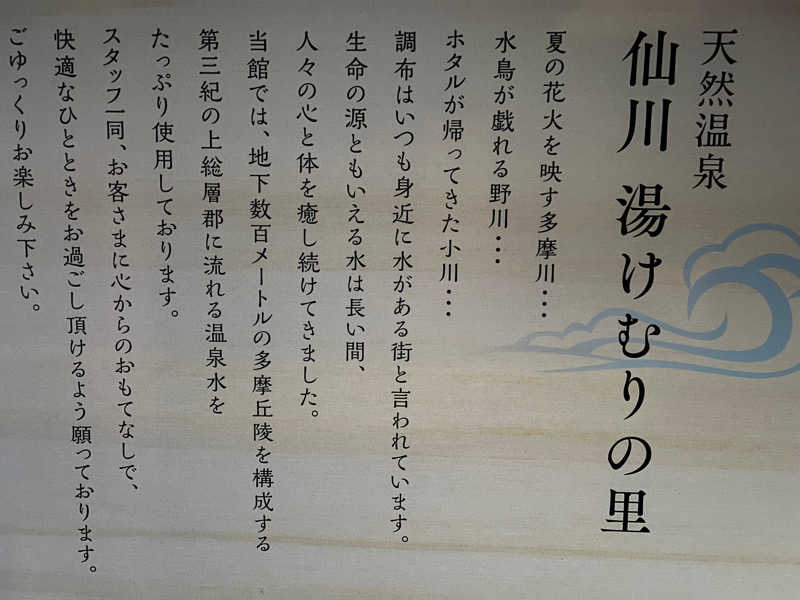 天然温泉
仙川 湯けむりの里
夏の花火を映す多摩川…
水鳥が戯れる野川…
ホタルが帰ってきた小川…
調布はいつも身近に水がある街と言われています。
生命の源ともいえる水は長い間、
人々の心と体を癒し続けてきました。
当館では、地下数百メートルの多摩丘陵を構成する
第三紀の上総層郡に流れる温泉水を
たっぷり使用しております。
スタッフ一同、お客さまに心からのおもてなしで、
快適なひとときをお過ごし頂けるよう願っております。
ごゆっくりお楽しみ下さい。